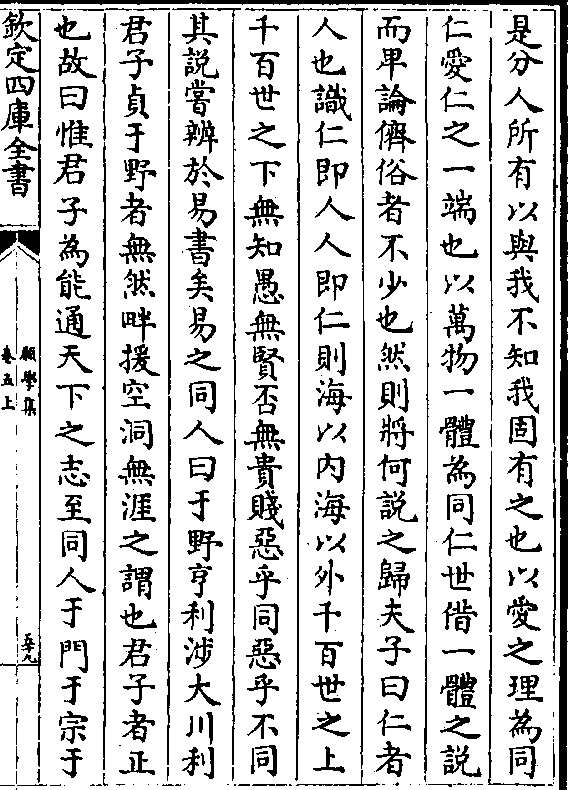 是分人所有以與我不知我固有之也以愛之理為同
仁愛仁之一端也以萬物一體為同仁世借一體之說
而卑論儕俗者不少也然則將何說之歸夫子曰仁者
人也識仁即人人即仁則海以內海以外千百世之上
千百世之下無知愚無賢否無貴賤惡乎同惡乎不同
其說嘗辨於易書矣易之同人曰于野亨利涉大川利
君子貞于野者無然畔援空洞無涯之謂也君子者正
也故曰惟君子為能通天下之志至同人于門于宗于
欽定四庫全書
願學集
卷五上
五十九